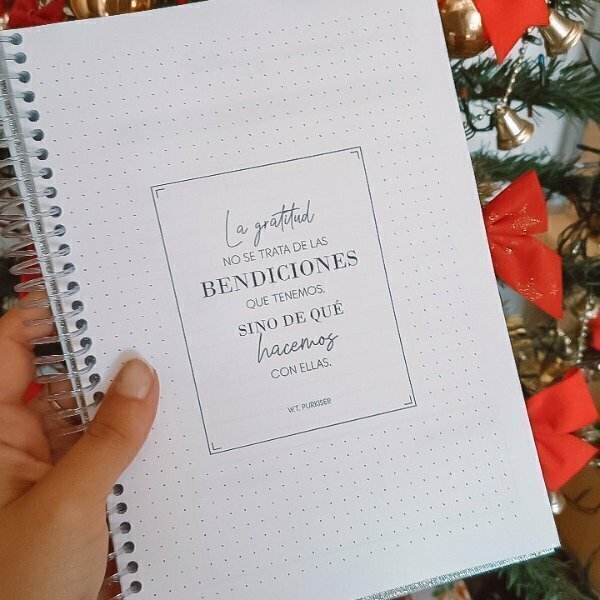 La gratitud
NO SE TRATA DE LAS
BENDICIONES
QUE TENEMOS,
SINO DE QUÉ
hacemos
CON ELLAS.
W.T. PURKISER